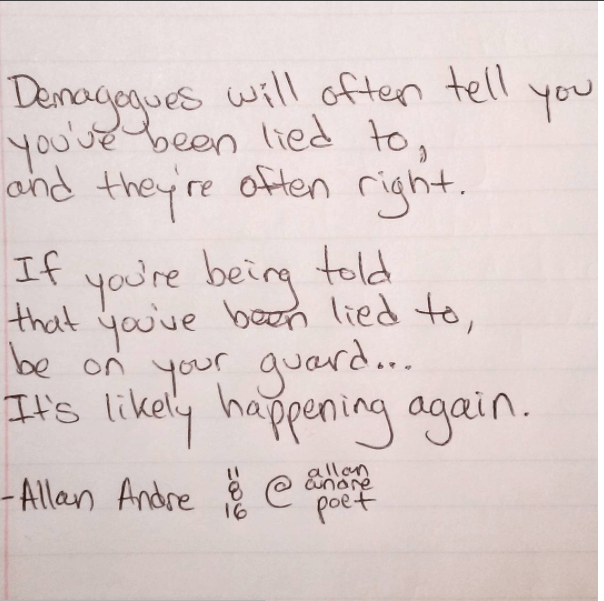 Demagogues will often tell you
you've been lied to,
and they're often right.
If you're being told
that you've been lied to,
be on your guard...
It's likely happening again.
-Allan Andre 11 8 16 @ allan andre poet